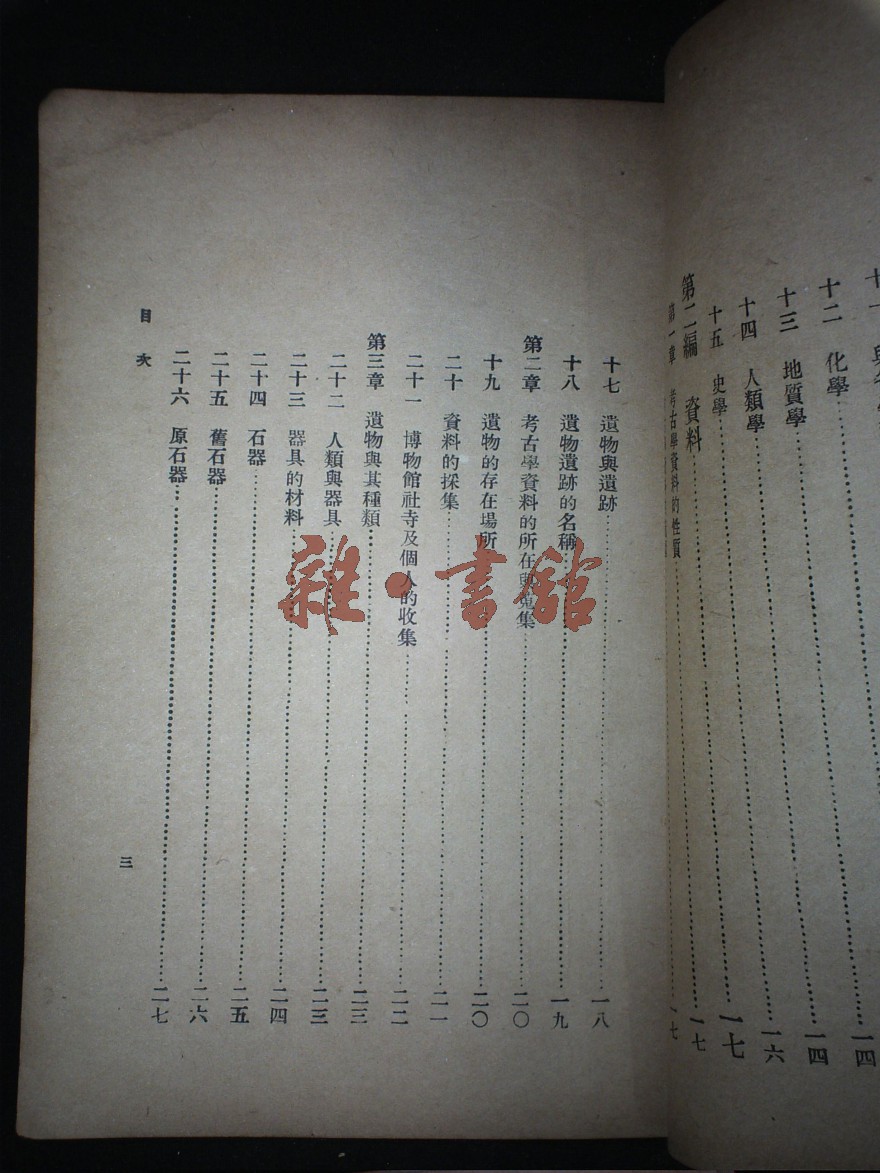 十二 化學……一四
十三 地質學……一四
十四 人類學……一六
十五 史學……一七
第二編 資料……一七
第一章 考古學資料的性質……一七
十七 遺物與遺跡……一八
十八 遺物遺跡的名稱……一九
第二章 考古學資料的所在與蒐集……二〇
十九 遺物的存在場所……二〇
二十 資料的採集……二一
二十一 博物館社寺及個人的收集……二二
第三章 遺物與其種類……二三
二十二 人類與器具……二三
二十三 器具的材料……二四
二十四 石器……二五
二十五 舊石器……二六
二十六 原石器……二七
目次
三
雜·書館